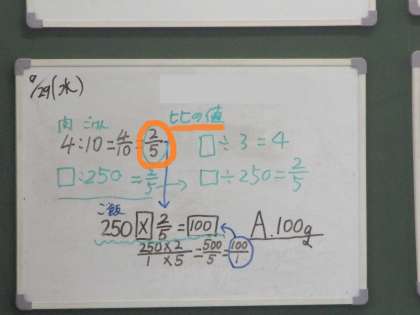 9/29(水)
比の値
肉 ごはん
4:10=4/10=2/5
□÷3=4
□:250=2/5→□÷250=2/5
ご飯
250×2/5=100
A.100g
250×2/1×5=500/5=100/1